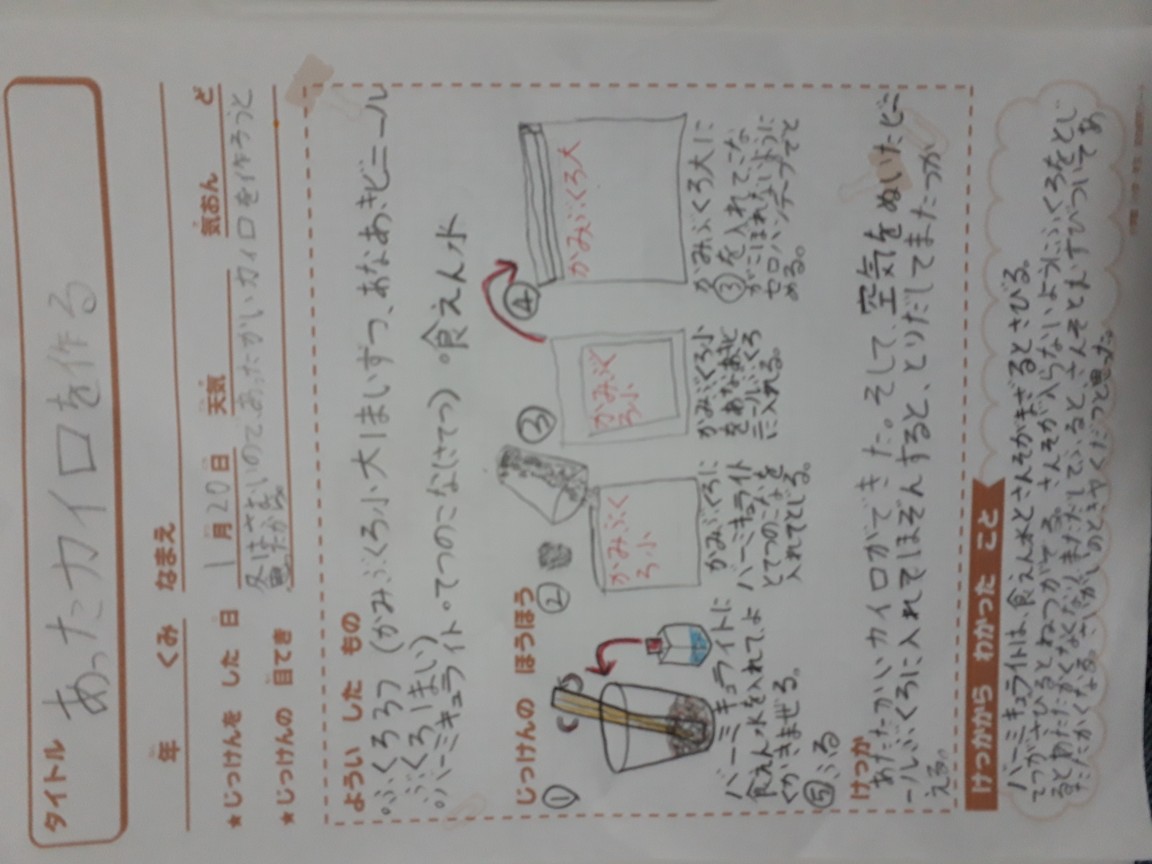 タイトル
あったカイロを作る
年 くみ なまえ
★じっけんを した 日 1月20日 天気 気おん ど
★じっけんの 目てき 冬はさむいのであったかいカイロを作ろうと
思ったから
ようい した もの
・ふくろ3つ(かみぶくろ小大1まいずつ、あなあきビニール
ぶくろ1まい)
・バーミキュライト・てつのこな(さてつ)・食えん水
じっけんの ほうほう
①
バーミキュライトに
食えん水を入れてよ
くかきまぜる。
②
かみぶくろ小
かみぶくろに
バーミキュライト
とてつのこなを
入れてとじる。
③
かみぶくろ小
かみぶくろ小
をあなあきビ
ニールぶくろ
に入れる。
④
かみぶくろ大
かみぶくろ大に
③を入れてこな
がこぼれないように
セロハンテープでと
める。
⑤ふる
けっか
あたたかいカイロができた。そして、空気をぬいたビニ
ールぶくろに入れてほぞんすると、とりだしてまたつか
える。
けっかから わかった こと
バーミキュライトは、食えん水とさんそがまざるとさびる。
てつがさびるとねつがでる。さんそが入らないようにふくろをとじ
るとあたたかくなくなり、まただしていると、さんそとむすびついてあ
たたかくなる。